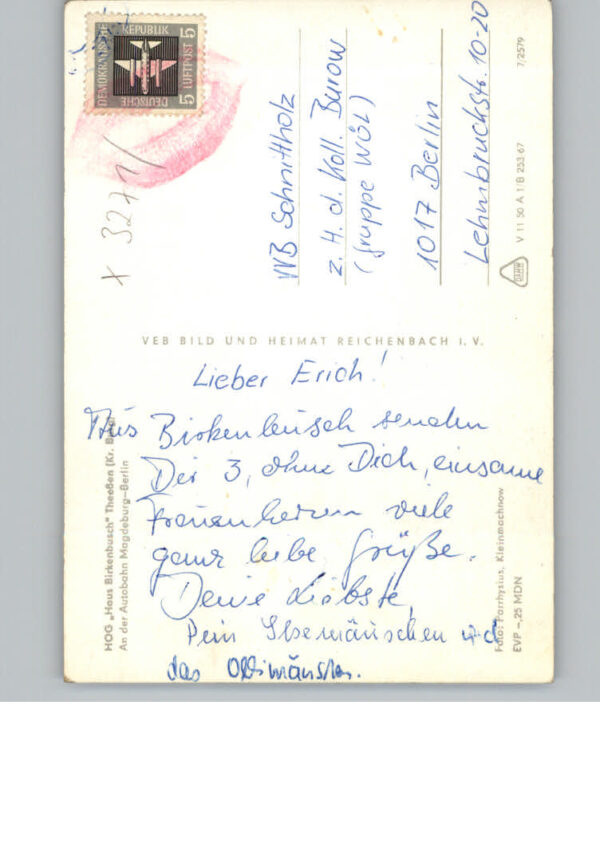 DEUTSCHE
DEMOKRATISCHE
REPUBLIK
5 LUFTPOST 5
x 3271/
VVB Schnittholz
z. H. d. Koll. Burow
(Gruppe WÖL)
1017 Berlin
Lehmbruckstr. 10-20
7/2579
V 11 50 A 1/B 253/67
VEB BILD UND HEIMAT REICHENBACH I. V.
Lieber Erich!
Aus Birkenbusch senden
Dir 3, ohne Dich, einsame
Frauenherzen viele
ganz liebe Grüße.
Deine Liebste,
Dein Ilsemäuschen und
das
HOG „Haus Birkenbusch" Theeßen (Kr. Burg)
An der Autobahn Magdeburg-Berlin
Foto: Parrhysius, Kleinmachnow
EVP -,25 MDN